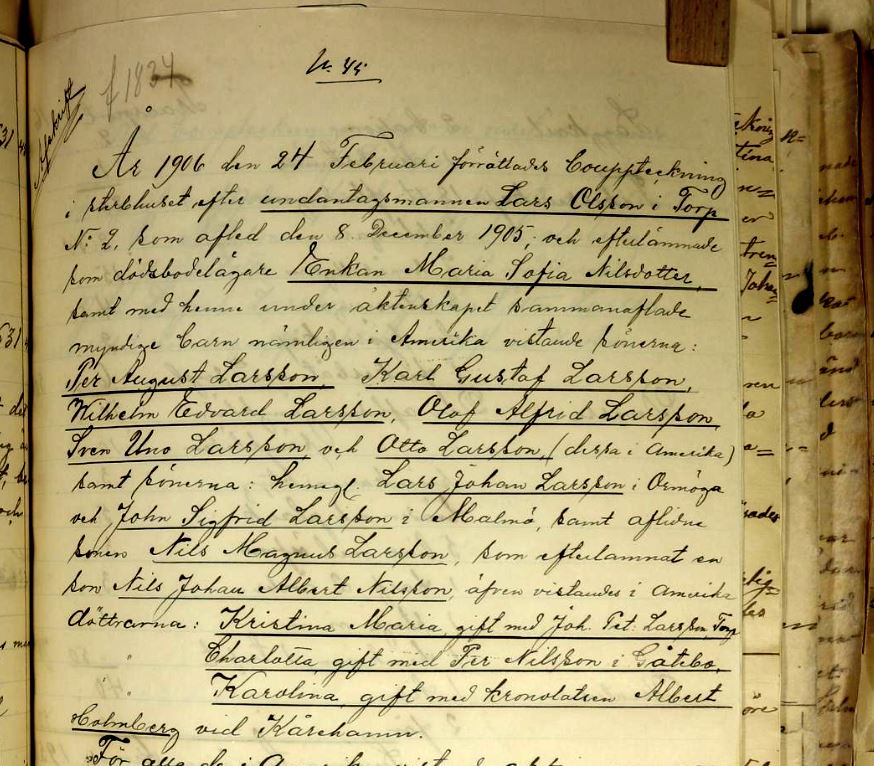 N. 45
f 1834
Afskrift
År 1906 den 24 Februari förrättades Bouppteckning
i sterbhuset efter undantagsmannen Lars Olsson i Torp
No: 2, som afled den 8. December 1905, och efterlämnade
som dödsbodelägare Enkan Maria Sofia Nilsdotter,
samt med henne under äktenskapet sammanaflade
myndige barn nämligen i Amerika vistande sönerna:
Per August Larsson, Karl Gustaf Larsson,
Wilhelm Edvard Larsson, Olof Alfrid Larsson,
Sven Uno Larsson, och Otto Larsson, (dessa i Amerika)
samt sönerna: hemegl. Lars Johan Larsson i Ormöga
och John Sigfrid Larsson i Malmö, samt aflidne
sonen Nils Magnus Larsson, som efterlämnat en
son Nils Johan Albert Nilsson, äfven vistandes i Amerika
döttrarna: Kristina Maria, gift med Joh. Pet. Larsson, Torp
" Charlotta gift med Per Nilsson i Gåtebo,
" Karolina, gift med kronolotsen Albert
Holmberg vid Kårehamn.
För alla de i